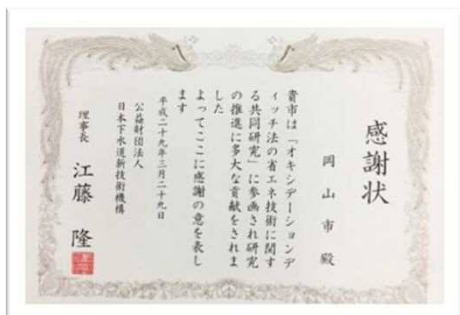 感謝状
岡山市殿
貴市は「オキシデーションデ
ィッチ法の省エネ技術に関す
る共同研究」に参画され研究
の推進に多大な貢献をされま
した
よってここに感謝の意を表し
ます
平成二十九年三月二十九日
公益財団法人
日本下水道新技術機構
理事長 江藤 隆